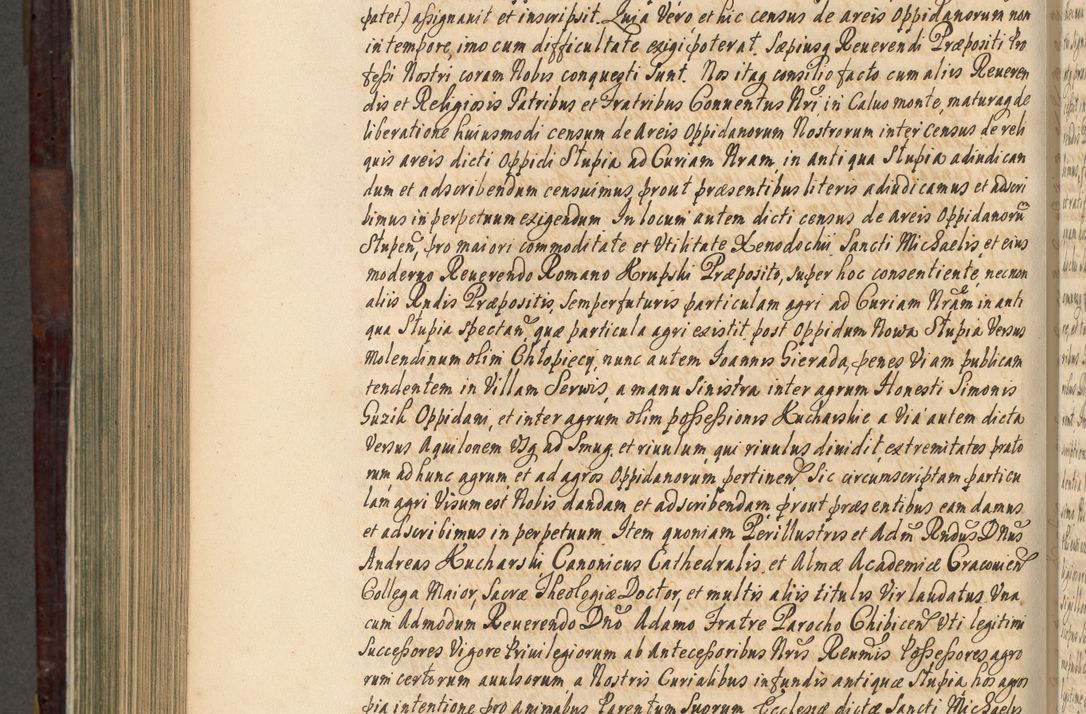 patet) assignauit et inscripsit. Quia Vero et hic census de areis Oppidanorum non
in tempore, imo cum difficultate exigi poterat. Sæpiusq Reuerendi Præpositi Pro
fessi Nostri coram Nobis conquesti sunt. Nos itaq consilio facto cum aliis Reueren
dis et Religiosis Patribus et Fratribus Conuentus Nri, in Caluo monte, maturaq de
liberatione huiusmodi censum de Areis Oppidanorum Nostrorum inter census de reli
quis areis dicti Oppidi Stupia ad Curiam Nram, in antiqua Stupia adiudican
dum et adscribendum censuimus, prout præsentibus literis adiudicamus et adscri
bimus in perpetuum exigendum. In locum autem dicti census de Areis Oppidanorũ
Stupen, pro maiori commoditate et Vtilitate Xenodochii Sancti Michaelis, et eius
moderno Reuerendo Romano Krupski Præposito, super hoc consentiente, necnon
aliis Rndis Præpositis, semper futuris particulam agri ad Curiam Nrãm in anti
qua Stupia spectan, quæ particula agri existit post Oppidum Nowa Stupia Versus
Molendinum olim Chłopiecy, nunc autem Ioannis Gierada, penes Viam publicam
tendentem in Villam Serwis, a manu Sinistra inter agrum Honesti Simonis
Guzik Oppidani, et inter agrum olim possessionis Kucharskie a Via autem dicta
Versus Aquilonem Vsq ad Smug, et riuulum, qui riuulus diuidit extremitates prato
rum ad hunc agrum et ad agros Oppidanorum pertinen. Sic circumscriptam particu
lam agri Visum est Nobis dandam et adscribendam, prout præsentibus eam damus
et adscribimus in perpetuum. Item quoniam Perillustris et Adm Rndus Dnus
Andreas Kucharski Canonicus Cathedralis, et Almæ Academiæ Cracouien
Collega Maior, Sacræ Theologiæ Doctor, et multis aliis titulis Vir laudatus. Vna
cum Admodum Reuerendo Dno Adamo Fratre Parocho Chibicen Vti legitimi
Successores Vigore Priuilegiorum ab Antecessoribus Nris Reumis Possessores agro
rum certorum auulsorum a Nostris Curialibus in fundis antiquæ Stupia hos agros
pia intentione pro animabus Parentum Suorum Ecclesiæ dictæ Sancti Michaelis